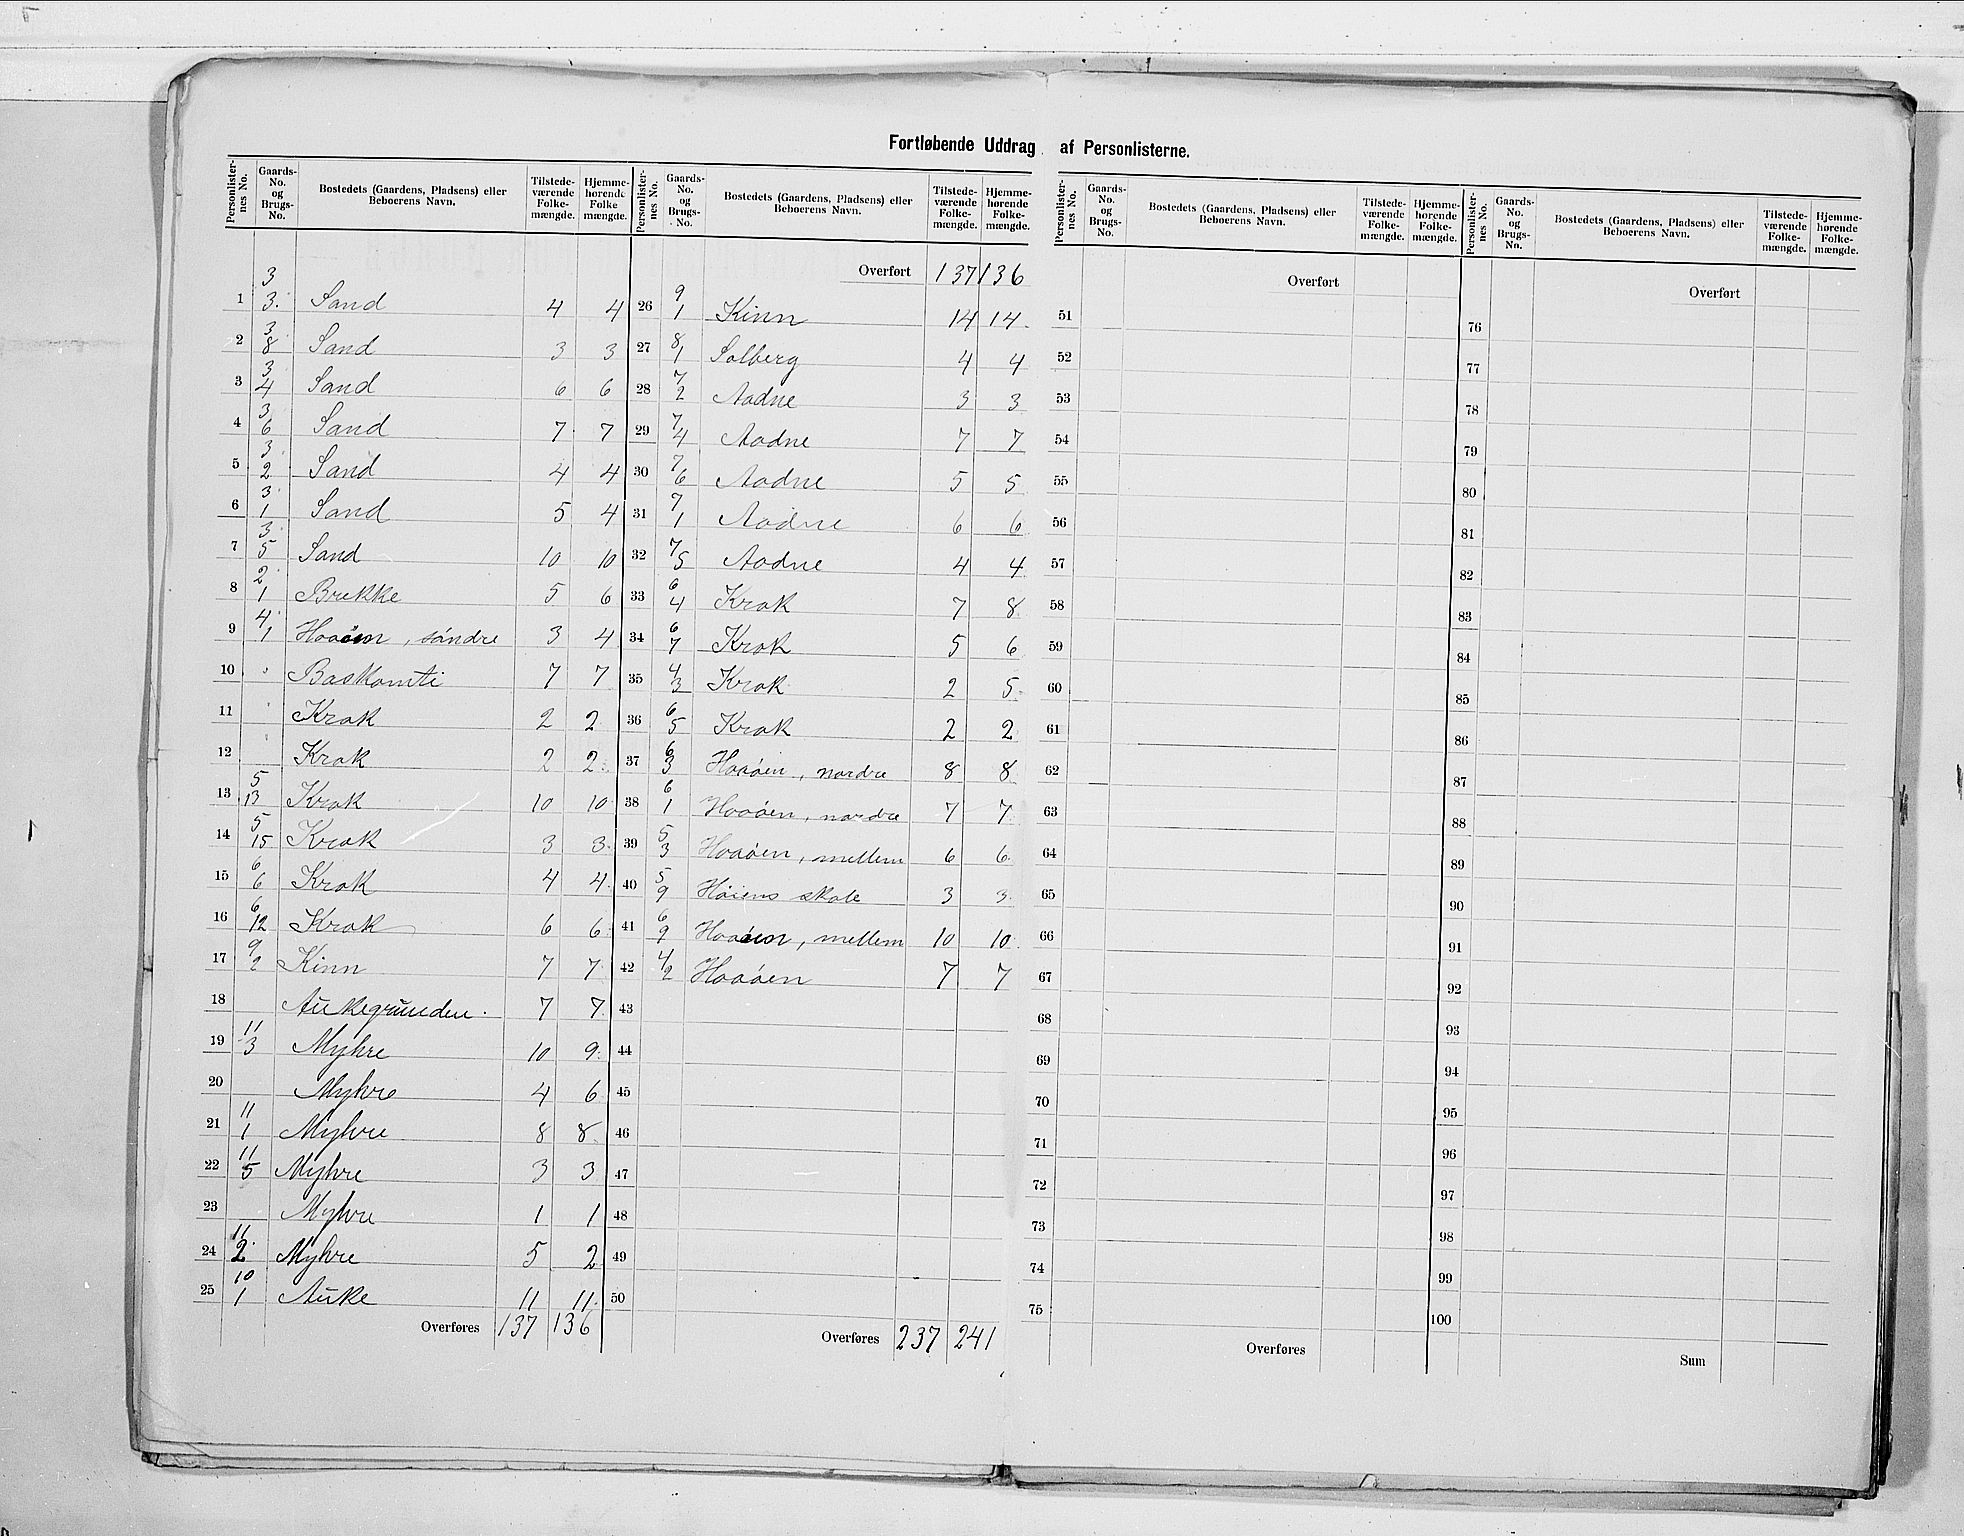 Fortløbende Uddrag af Personlisterne.
Personlister-nes No. | Gaards-No. og Brugs-No. | Bostedets (Gaardens, Pladsens) eller Beboerens Navn. | Tilstede-værende Folke-mængde. | Hjemme-hørende Folke mængde.
1 3/3 Sand 4 4
2 3/8 Sand 3 3
3 3/4 Sand 6 6
4 3/6 Sand 7 7
5 3/2 Sand 4 4
6 3/1 Sand 5 4
7 3/5 Sand 10 10
8 2/1 Brekke 5 6
9 4/1 Haaøen, søndre 3 4
10 Baskamti 7 7
11 Krok 2 2
12 Krok 2 2
13 5/13 Krok 10 10
14 5/15 Krok 3 3
15 6/6 Krok 4 4
16 6/12 Krok 6 6
17 9/2 Kinn 7 7
18 Aukegrunden 7 7
19 11/3 Myhre 10 9
20 Myhre 4 6
21 11/1 Myhre 8 8
22 11/5 Myhre 3 3
23 Myhre 1 1
24 11/2 Myhre 5 2
25 10/1 Auke 11 11
Overføres 137 136
Personlister-nes No. | Gaards-No. og Brugs-No. | Bostedets (Gaardens, Pladsens) eller Beboerens Navn. | Tilstede-værende Folke-mængde. | Hjemme-hørende Folke-mængde.
Overført 137 136
26 9/1 Kinn 14 14
27 8/1 Solberg 4 4
28 7/2 Aadne 3 3
29 7/4 Aadne 7 7
30 7/6 Aadne 5 5
31 7/1 Aadne 6 6
32 7/5 Aadne 4 4
33 6/4 Krok 7 8
34 6/7 Krok 5 6
35 4/3 Krok 2 5
36 6/5 Krok 2 2
37 6/3 Haaøen, nordre 8 8
38 6/1 Haaøen, nordre 7 7
39 5/3 Haaøen, mellem 6 6
40 5/9 Høiens skole 3 3
41 6/9 Haaøen, mellem 10 10
42 4/2 Haaøen 7 7
43
44
45
46
47
48
49
50
Overføres 237 241
Personlister-nes No. | Gaards-No. og Brugs-No. | Bostedets (Gaardens, Pladsens) eller Beboerens Navn. | Tilstede-værende Folke-mængde. | Hjemme-hørende Folke-mængde.
Overført
51
52
53
54
55
56
57
58
59
60
61
62
63
64
65
66
67
68
69
70
71
72
73
74
75
Overføres
Personlister-nes No. | Gaards-No. og Brugs-No. | Bostedets (Gaardens, Pladsens) eller Beboerens Navn. | Tilstede-værende Folke-mængde. | Hjemme-hørende Folke-mængde.
Overført
76
77
78
79
80
81
82
83
84
85
86
87
88
89
90
91
92
93
94
95
96
97
98
99
100
Sum